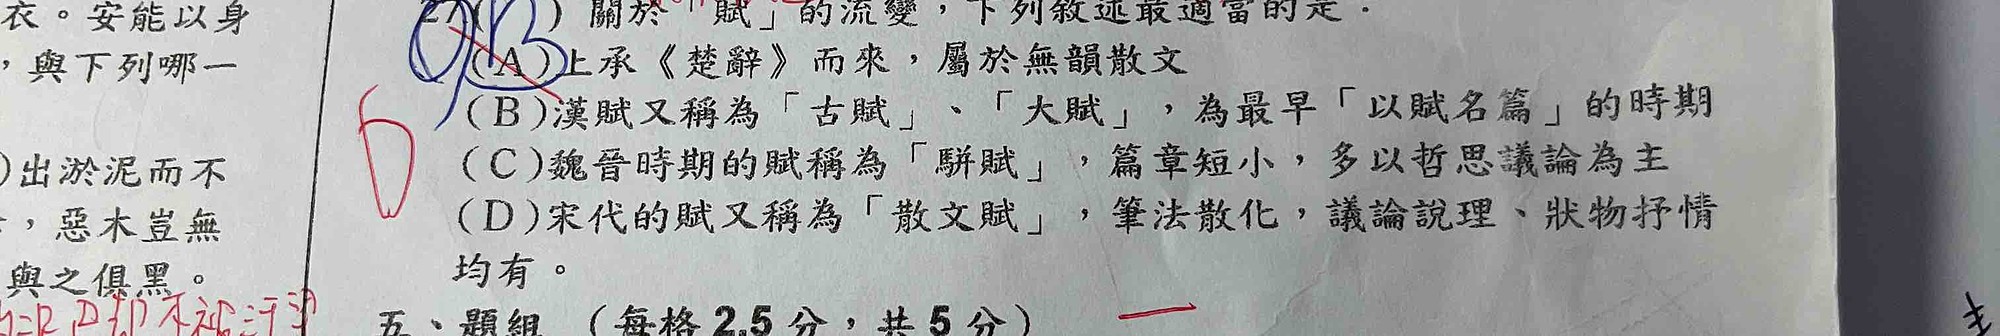 衣。安能以身
，與下列哪一
)出淤泥而不
，惡木豈無
與之俱黑。
27( B ) 關於「賦」的流變，下列敘述最適當的是：
(A)上承《楚辭》而來，屬於無韻散文
(B)漢賦又稱為「古賦」、「大賦」，為最早「以賦名篇」的時期
(C)魏晉時期的賦稱為「駢賦」，篇章短小，多以哲思議論為主
D
(D)宋代的賦又稱為「散文賦」，筆法散化，議論說理、狀物抒情
均有。
五、題組（每格 2.5 分，共 5 分）